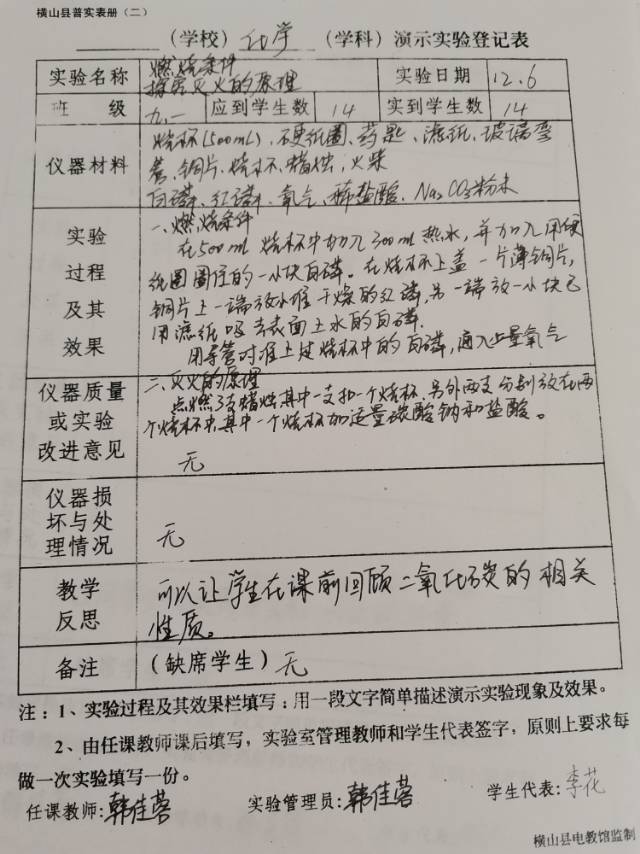 横山县普实表册（二）
（学校）化学（学科）演示实验登记表
实验名称 燃烧条件 探究灭火的原理 实验日期 12.6
班级 九一 应到学生数 14 实到学生数 14
仪器材料 烧杯(500mL)、硬纸圈、药匙、滤纸、玻璃弯
管、铜片、烧杯、蜡烛、火柴
白磷、红磷、氧气、稀盐酸、Na2CO3粉末
实验过程及其效果 一、燃烧条件
在500ml烧杯中加入300ml热水，并加入用硬
纸圈圈住的一小块白磷。在烧杯上盖一片薄铜片，
铜片上一端放小堆干燥的红磷，另一端放一小块已
用滤纸吸去表面上水的白磷。
用导管对准上述烧杯中的白磷，通入少量氧气
仪器质量或实验改进意见 二、灭火的原理
点燃3支蜡烛，其中一支扣一个烧杯，另外两支分别放在两
个烧杯中，其中一个烧杯加适量碳酸钠和盐酸。
无
仪器损坏与处理情况 无
教学反思 可以让学生在课前回顾二氧化碳的相关
性质。
备注 （缺席学生）无
注：1、实验过程及其效果栏填写：用一段文字简单描述演示实验现象及效果。
2、由任课教师课后填写，实验室管理教师和学生代表签字，原则上要求每
做一次实验填写一份。
任课教师：韩佳蓉 实验管理员：韩佳蓉 学生代表：李花
横山县电教馆监制